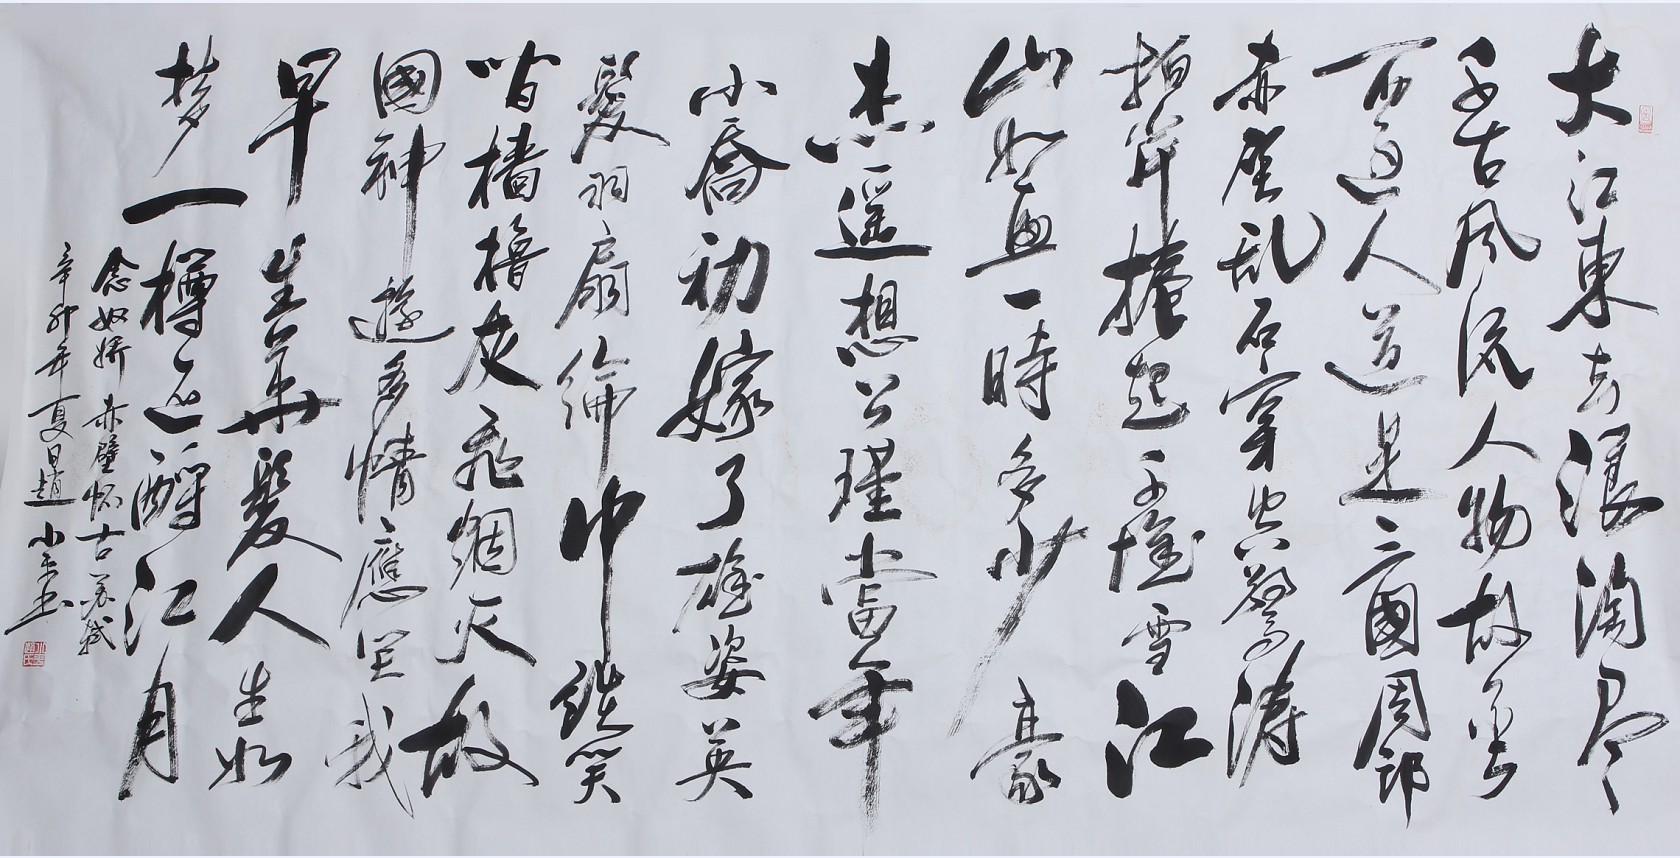 大江東去浪淘尽
千古風流人物故壘
西邊人道是三國周郎
赤壁乱石穿空驚濤
拍岸捲起千堆雪江
山如畫一時多少豪
杰遥想公瑾當年
小喬初嫁了雄姿英
發羽扇綸巾談笑
间檣櫓灰飛烟灭故
國神遊多情應笑我
早生華髮人生如
梦一樽还酹江月
念奴娇赤壁怀古苏轼
辛卯年夏日趙小